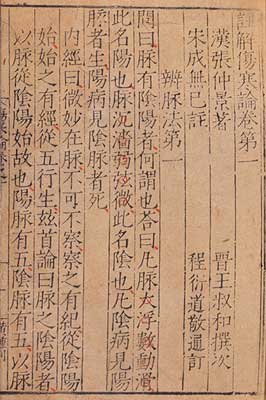 註解傷寒論卷第一
漢張仲景著　晉王叔和撰次
宋成無已註　程衍道敬通訂
辨脉法第一
問曰脉有陰陽者何謂也荅曰凡脉大浮數動滑
此名陽也脉沉濇弱弦微此名陰也凡陰病見陽
脉者生陽病見陰脉者死
內經曰微妙在脉不可不察察之有紀從陰陽
始始之有經從五行生兹首論曰脉之陰陽者
以脉從陰陽始故也陽脉有五陰脉有五以脉